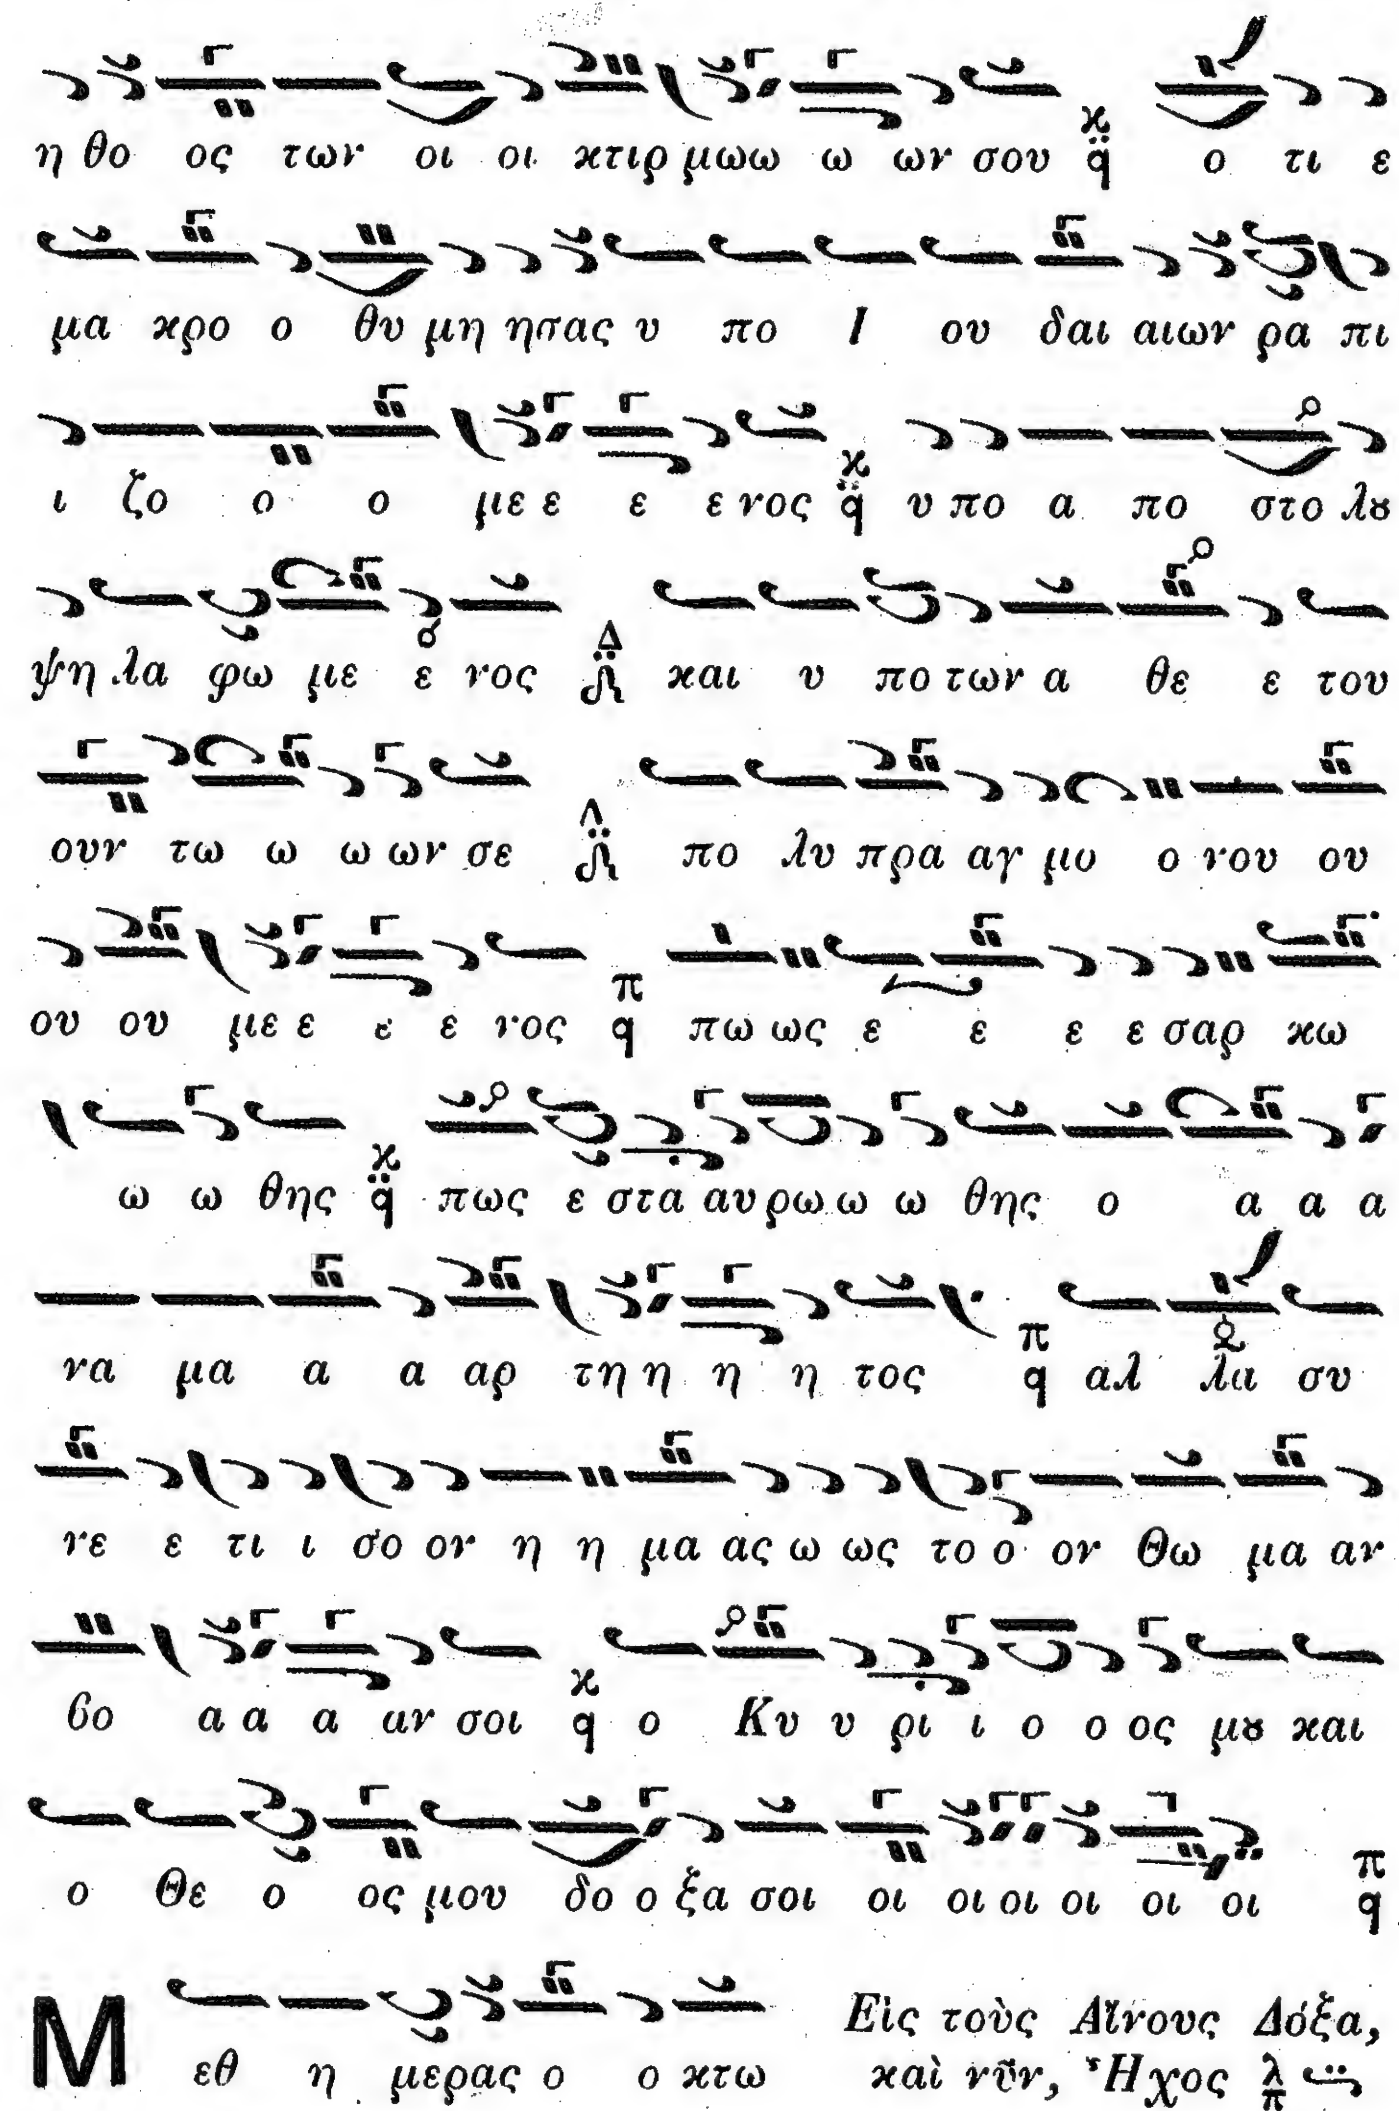 η θο ος των οι οι κτιρ μωω ω ων σου ϰ q ο τι ε
μα κρο ο θυ μη ησας υ πο Ι ου δαι αιων ρα πι
ι ζο ο ο με ε ε ε νος ϰ q υ πο α πο στο λȣ
ψη λα φω με ε νος Δ και υ πο των α θε ε του
ουν τω ω ω ων σε Δ πο λυ πρα αγ μο ο νου ου
ου ου με ε ε ε νος π q πω ως ε ε ε ε σαρ κω
ω ω θης ϰ q πως ε στα αυ ρω ω ω θης ο α α α
να μα α α αρ τη η η η τος π q αλ λα συ
νε ε τι ι σο ον η η μα ας ω ως το ο ον Θω μα αν
βο α α α αν σοι ϰ q ο Κυ υ ρι ι ο ο ος μȣ και
ο Θε ο ος μου δο ο ξα σοι οι οι οι οι οι οι π q
Μ εθ η μερας ο ο κτω
Εἰς τοὺς Αἴνους Δόξα,
καὶ νῦν, Ἦχος λ π